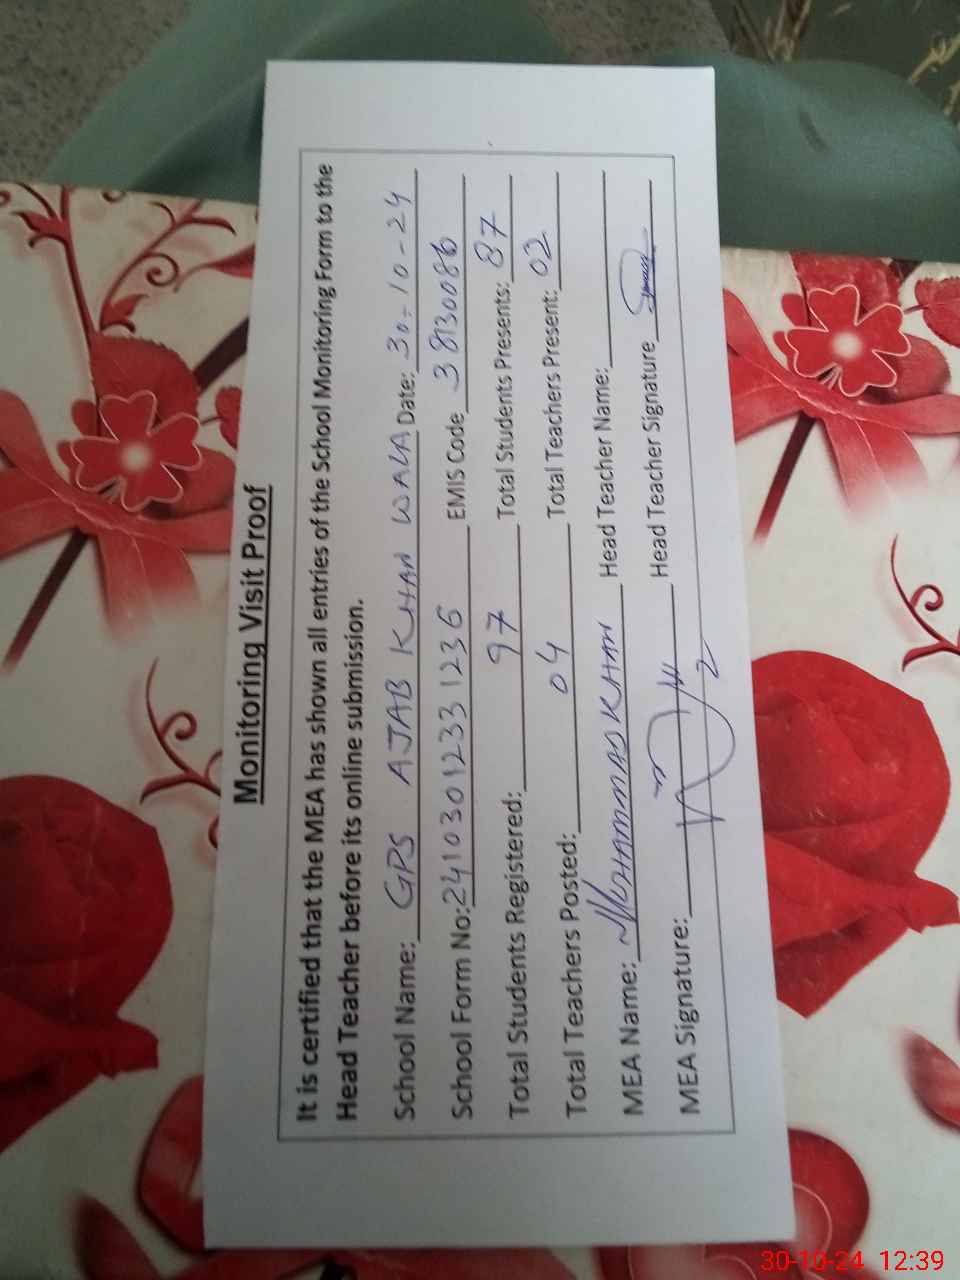 Monitoring Visit Proof
It is certified that the MEA has shown all entries of the School Monitoring Form to the
Head Teacher before its online submission.
School Name: GPS AJAB KHAN WALA Date: 30-10-24
School Form No: 2410301233 1236 EMIS Code 38130086
Total Students Registered: 97 Total Students Presents: 87
Total Teachers Posted: 04 Total Teachers Present: 02
MEA Name: MUHAMMAD KHAN Head Teacher Name:
MEA Signature: Head Teacher Signature
30-10-24 12:39